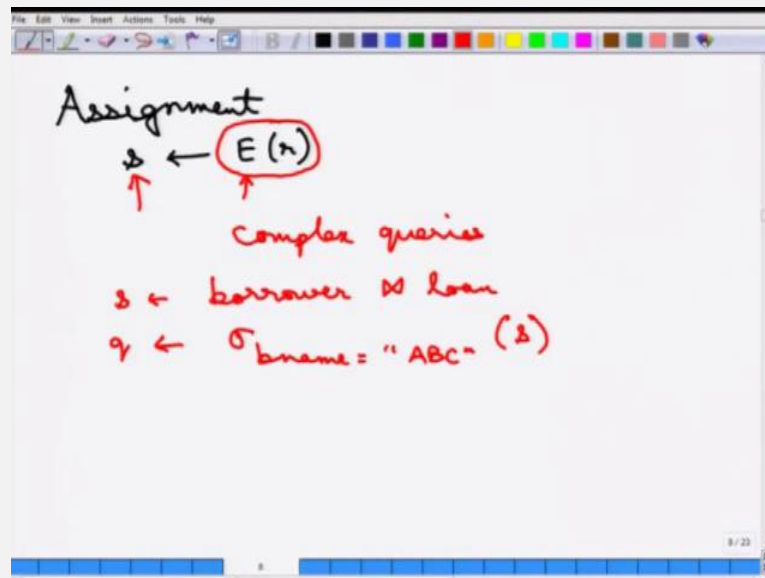 File Edit View Insert Actions Tools Help
Assignment
s ← E (r)
complex queries
s ← borrower ⋈ loan
q ← σ bname = "ABC" (s)
8 / 23
8